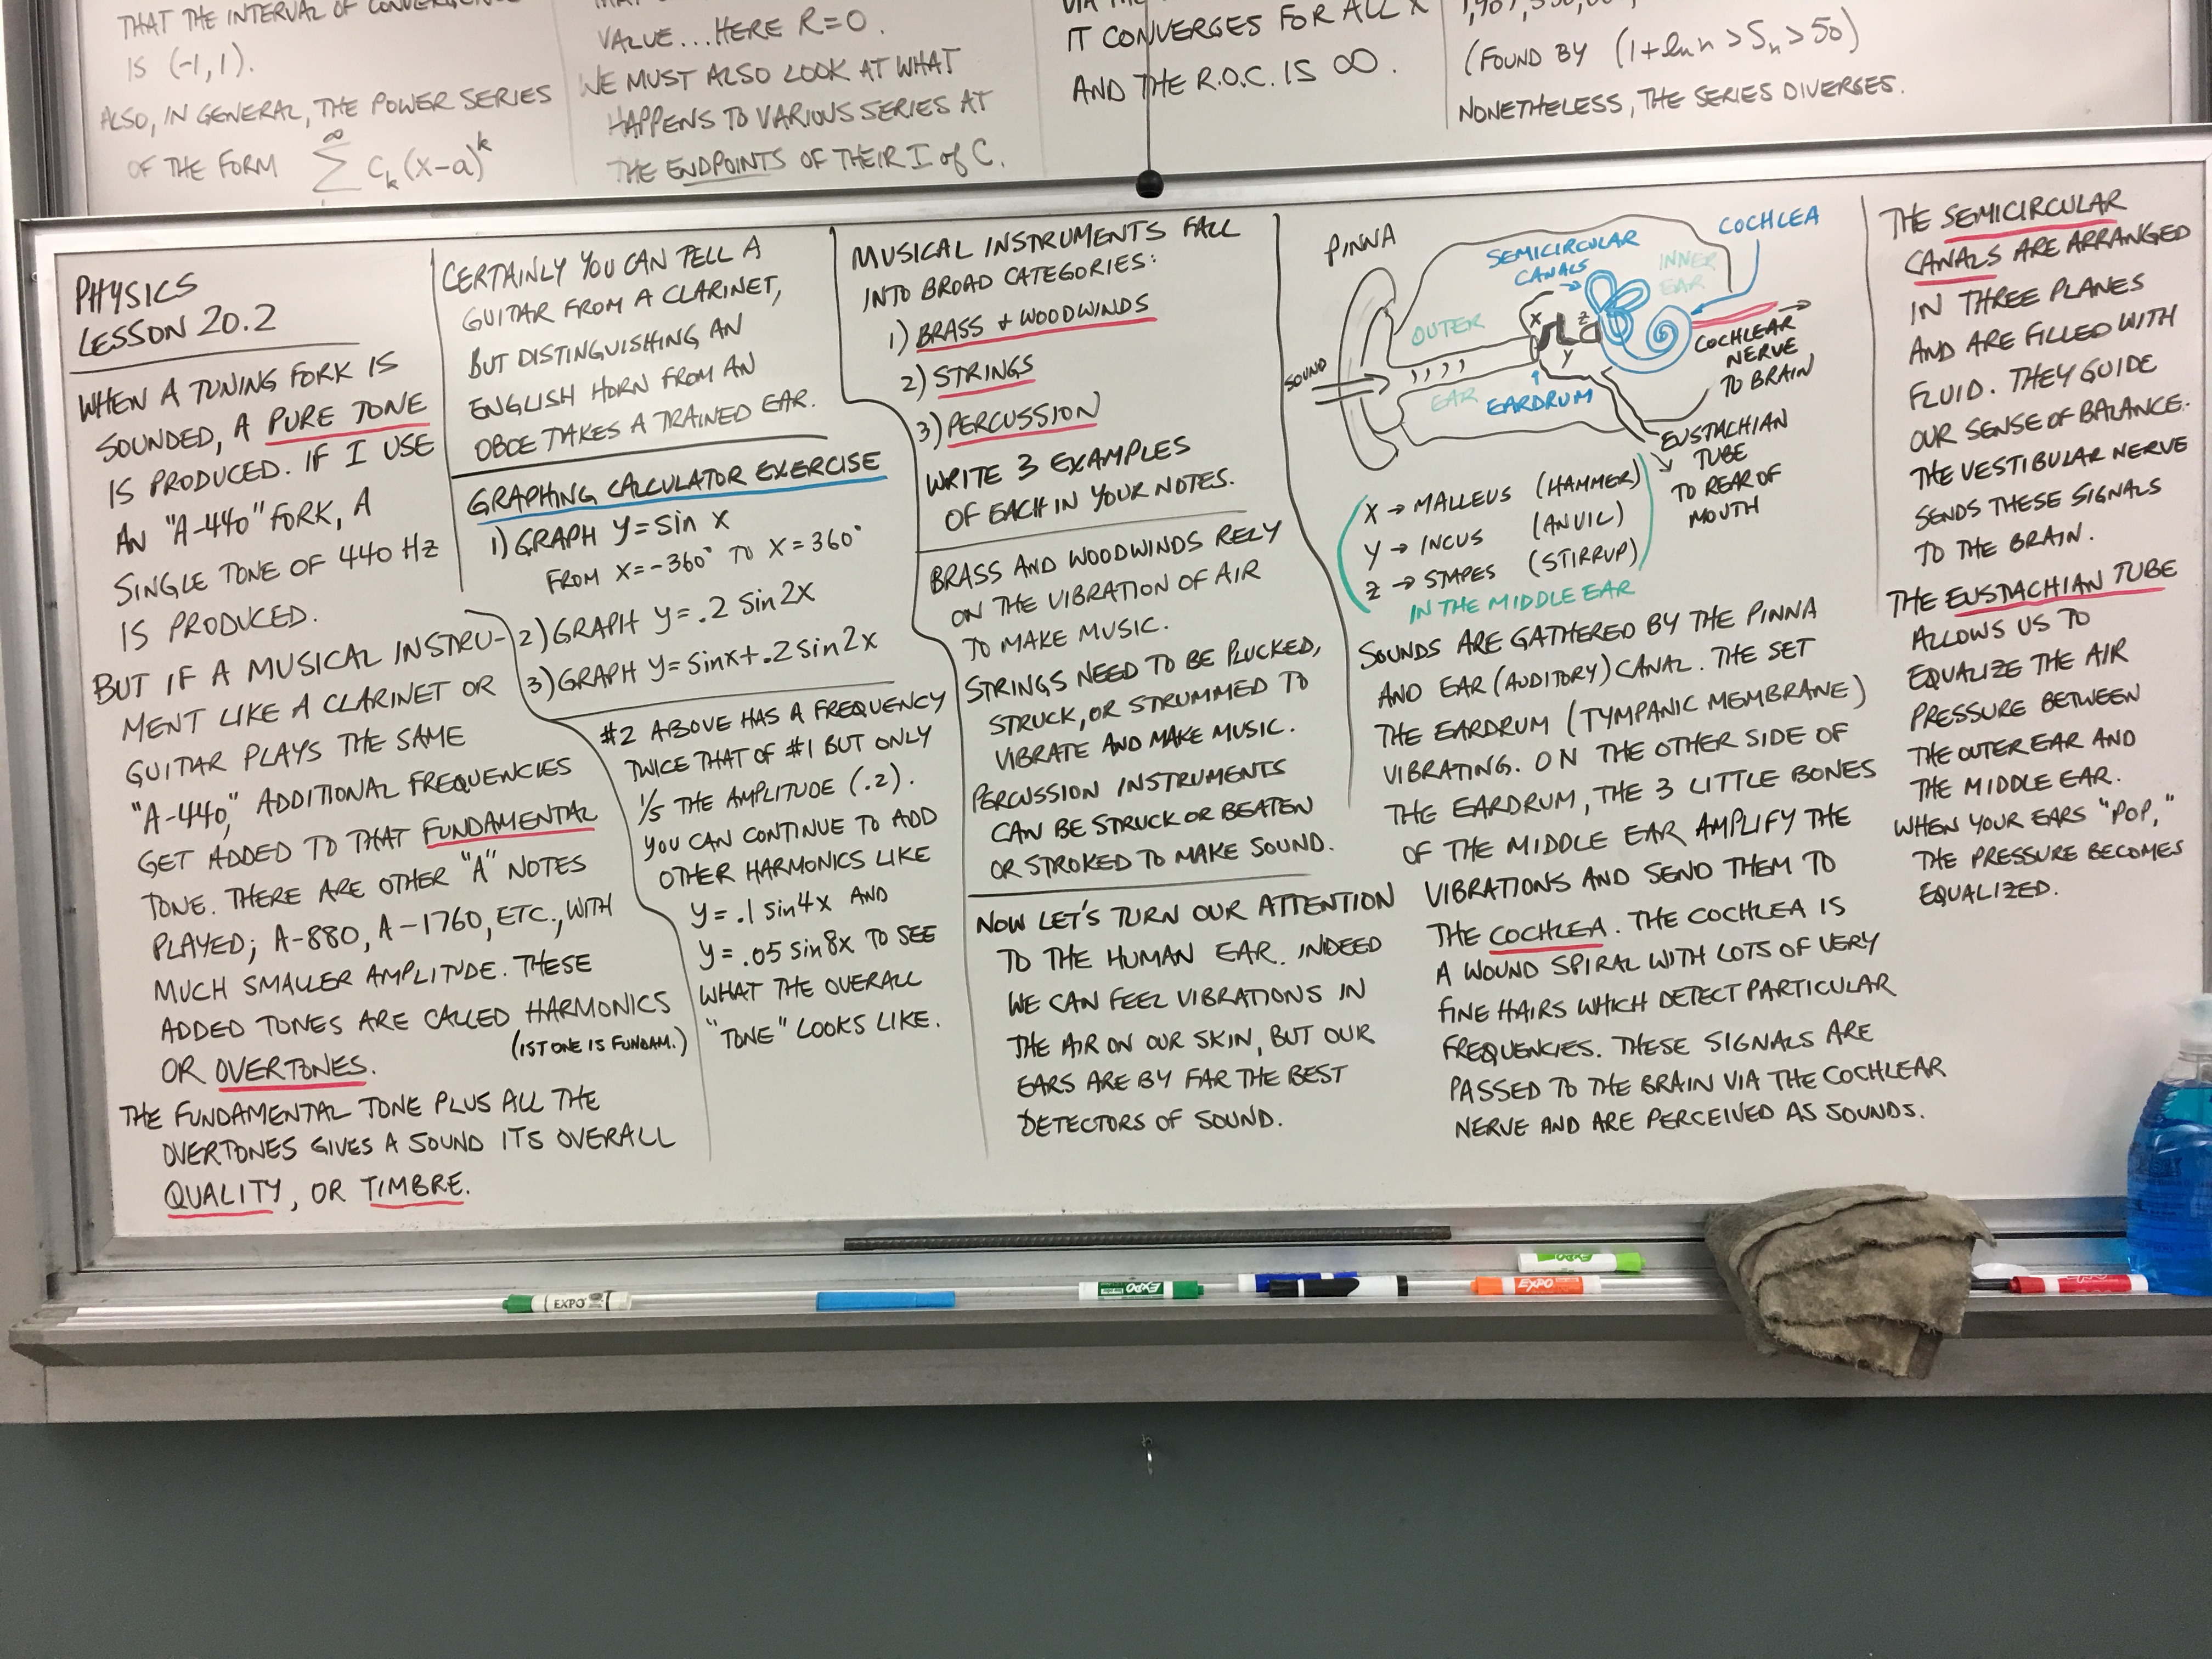 THAT THE INTERVAL OF CONVERGENCE
IS (-1,1).
ALSO, IN GENERAL, THE POWER SERIES
OF THE FORM ∞ Σ Cₖ(x-a)ᵏ
VALUE...HERE R=0.
WE MUST ALSO LOOK AT WHAT
HAPPENS TO VARIOUS SERIES AT
THE ENDPOINTS OF THEIR I of C.
VIA THE
IT CONVERGES FOR ALL X
AND THE R.O.C. IS ∞.
(FOUND BY (1+ln n > Sₙ > 50)
NONETHELESS, THE SERIES DIVERGES.
PHYSICS
LESSON 20.2
WHEN A TUNING FORK IS
SOUNDED, A PURE TONE
IS PRODUCED. IF I USE
AN "A-440" FORK, A
SINGLE TONE OF 440 HZ
IS PRODUCED.
BUT IF A MUSICAL INSTRU-
MENT LIKE A CLARINET OR
GUITAR PLAYS THE SAME
"A-440," ADDITIONAL FREQUENCIES
GET ADDED TO THAT FUNDAMENTAL
TONE. THERE ARE OTHER "A" NOTES
PLAYED; A-880, A-1760, ETC., WITH
MUCH SMALLER AMPLITUDE. THESE
ADDED TONES ARE CALLED HARMONICS
(1ST ONE IS FUNDAM.)
OR OVERTONES.
THE FUNDAMENTAL TONE PLUS ALL THE
OVERTONES GIVES A SOUND ITS OVERALL
QUALITY, OR TIMBRE.
CERTAINLY YOU CAN TELL A
GUITAR FROM A CLARINET,
BUT DISTINGUISHING AN
ENGLISH HORN FROM AN
OBOE TAKES A TRAINED EAR.
GRAPHING CALCULATOR EXERCISE
1) GRAPH y = sin x
FROM X=-360° TO X=360°
2) GRAPH y=.2 sin 2x
3) GRAPH y=sinx+.2sin2x
#2 ABOVE HAS A FREQUENCY
TWICE THAT OF #1 BUT ONLY
1/5 THE AMPLITUDE (.2).
YOU CAN CONTINUE TO ADD
OTHER HARMONICS LIKE
y=.1 sin4x AND
y=.05 sin8x TO SEE
WHAT THE OVERALL
"TONE" LOOKS LIKE.
MUSICAL INSTRUMENTS FALL
INTO BROAD CATEGORIES:
1) BRASS + WOODWINDS
2) STRINGS
3) PERCUSSION
WRITE 3 EXAMPLES
OF EACH IN YOUR NOTES.
BRASS AND WOODWINDS RELY
ON THE VIBRATION OF AIR
TO MAKE MUSIC.
STRINGS NEED TO BE PLUCKED,
STRUCK, OR STRUMMED TO
VIBRATE AND MAKE MUSIC.
PERCUSSION INSTRUMENTS
CAN BE STRUCK OR BEATEN
OR STROKED TO MAKE SOUND.
NOW LET'S TURN OUR ATTENTION
TO THE HUMAN EAR. INDEED
WE CAN FEEL VIBRATIONS IN
THE AIR ON OUR SKIN, BUT OUR
EARS ARE BY FAR THE BEST
DETECTORS OF SOUND.
PINNA
SEMICIRCULAR
CANALS
COCHLEA
INNER
EAR
OUTER
EAR
SOUND
EARDRUM
X
Y
Z
COCHLEAR
NERVE
TO BRAIN
EUSTACHIAN
TUBE
TO REAR OF
MOUTH
X → MALLEUS (HAMMER)
Y → INCUS (ANVIL)
Z → STAPES (STIRRUP)
IN THE MIDDLE EAR
SOUNDS ARE GATHERED BY THE PINNA
AND EAR (AUDITORY) CANAL. THE SET
THE EARDRUM (TYMPANIC MEMBRANE)
VIBRATING. ON THE OTHER SIDE OF
THE EARDRUM, THE 3 LITTLE BONES
OF THE MIDDLE EAR AMPLIFY THE
VIBRATIONS AND SEND THEM TO
THE COCHLEA. THE COCHLEA IS
A WOUND SPIRAL WITH LOTS OF VERY
FINE HAIRS WHICH DETECT PARTICULAR
FREQUENCIES. THESE SIGNALS ARE
PASSED TO THE BRAIN VIA THE COCHLEAR
NERVE AND ARE PERCEIVED AS SOUNDS.
THE SEMICIRCULAR
CANALS ARE ARRANGED
IN THREE PLANES
AND ARE FILLED WITH
FLUID. THEY GUIDE
OUR SENSE OF BALANCE.
THE VESTIBULAR NERVE
SENDS THESE SIGNALS
TO THE BRAIN.
THE EUSTACHIAN TUBE
ALLOWS US TO
EQUALIZE THE AIR
PRESSURE BETWEEN
THE OUTER EAR AND
THE MIDDLE EAR.
WHEN YOUR EARS "POP,"
THE PRESSURE BECOMES
EQUALIZED.
EXPO
EXPO
EXPO
EXPO